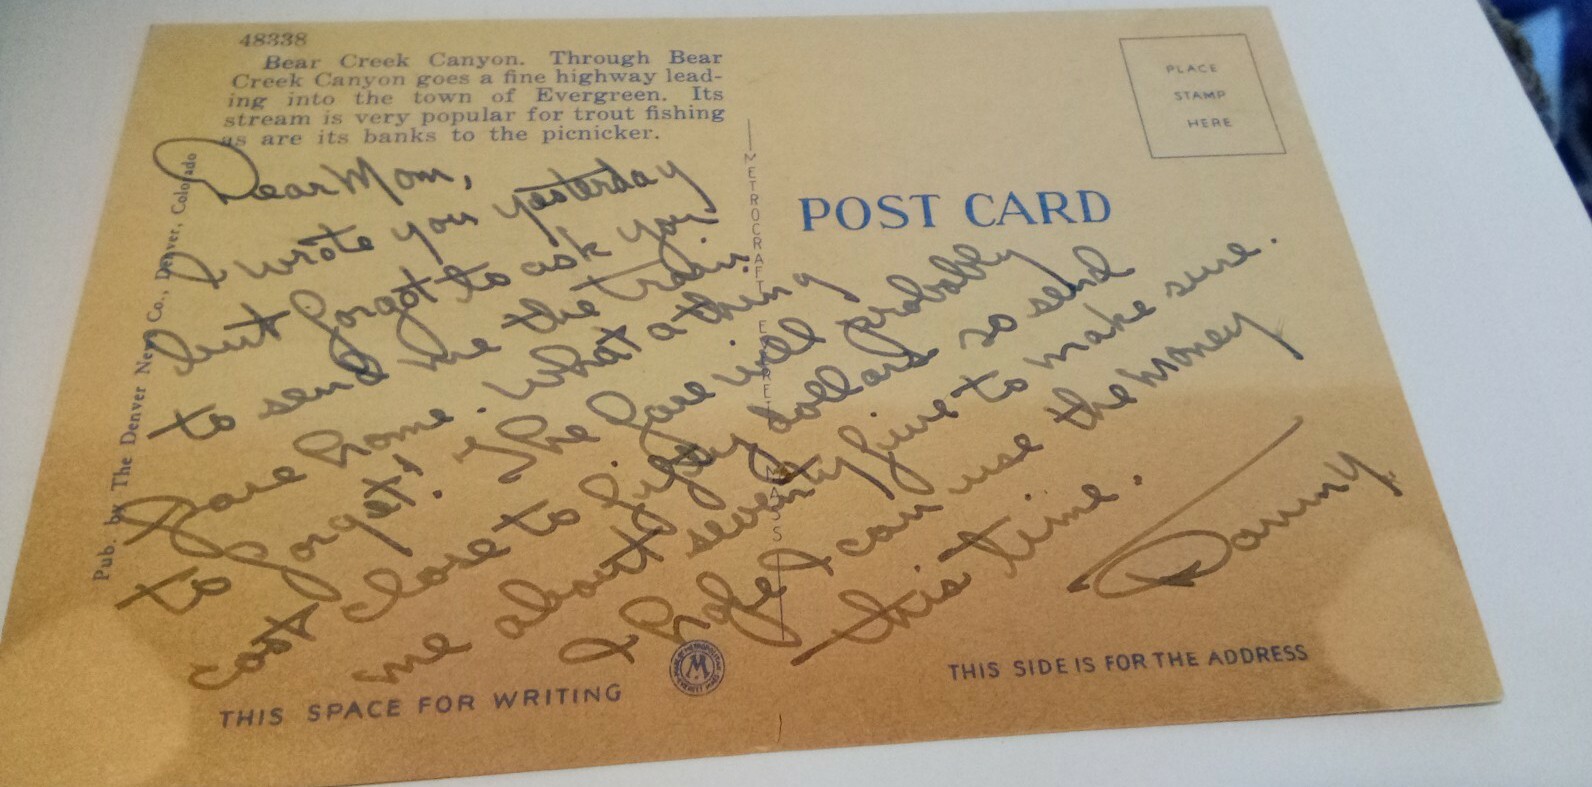 48338
Bear Creek Canyon. Through Bear
Creek Canyon goes a fine highway lead-
ing into the town of Evergreen. Its
stream is very popular for trout fishing
as are its banks to the picnicker.
Pub. by The Denver News Co., Denver, Colorado
Dear Mom,
I wrote you yesterday
but forgot to ask you
to send me the train
fare home. What a thing
to forget! The fare will probably
cost close to fifty dollars so send
me about seventy five to make sure.
I hope I can use the money
this time.
Danny
METROCRAFT EVERETT MASS
PLACE
STAMP
HERE
POST CARD
THIS SPACE FOR WRITING
M
THIS SIDE IS FOR THE ADDRESS